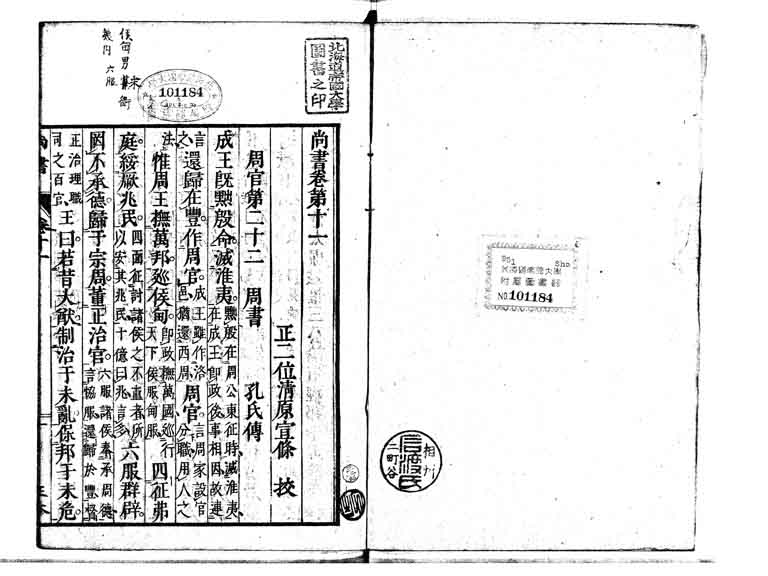 尚書卷第十一
正二位清原宣條 校
周官第二十二 周書 孔氏傳
成王既黜殷命滅淮夷黜殷在周公東征時滅淮夷在成王即政後事相因故連
言之還歸在豐作周官成王雖作洛邑猶還西周周官言周家設官分職用人之
法惟周王撫萬邦巡侯甸即政撫萬國巡行天下侯服甸服四征弗
庭綏厥兆民四面征討諸侯之不直者所以安其兆民十億曰兆言多六服群辟
罔不承德歸于宗周董正治官六服諸侯奉承周德言協服還歸於豐督
正治理職司之百官王曰若昔大猷制治于未亂保邦于未危
尚書
北海道帝國大學圖書之印
101184
侯甸男采衛
畿內 六服
附屬圖書
NO.101184
相州
二町谷